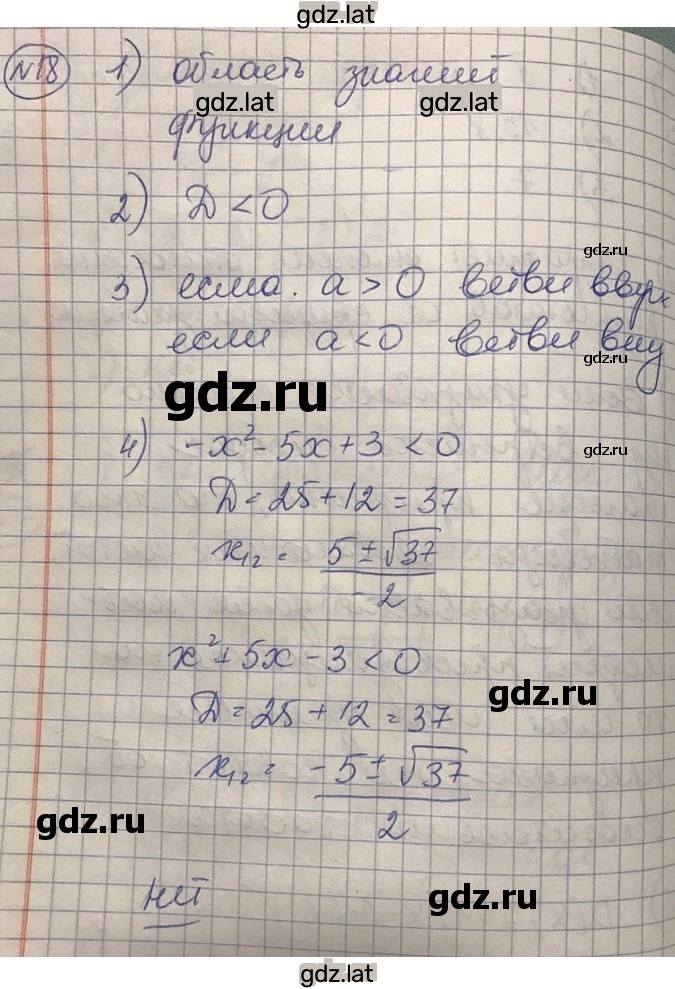 gdz.lat
№18 1) область значений
gdz.lat gdz.lat
функции
2) D < 0
gdz.ru
3) если. a > 0 ветви вверх
если a < 0 ветви вниз
gdz.ru
gdz.ru
4) -x² - 5x + 3 < 0
gdz.ru
D = 25 + 12 = 37
x₁₂ = 5 ± √37 / -2
x² + 5x - 3 < 0
gdz.ru
D = 25 + 12 = 37
x₁₂ = -5 ± √37 / 2
gdz.ru
нет
gdz.ru
gdz.lat